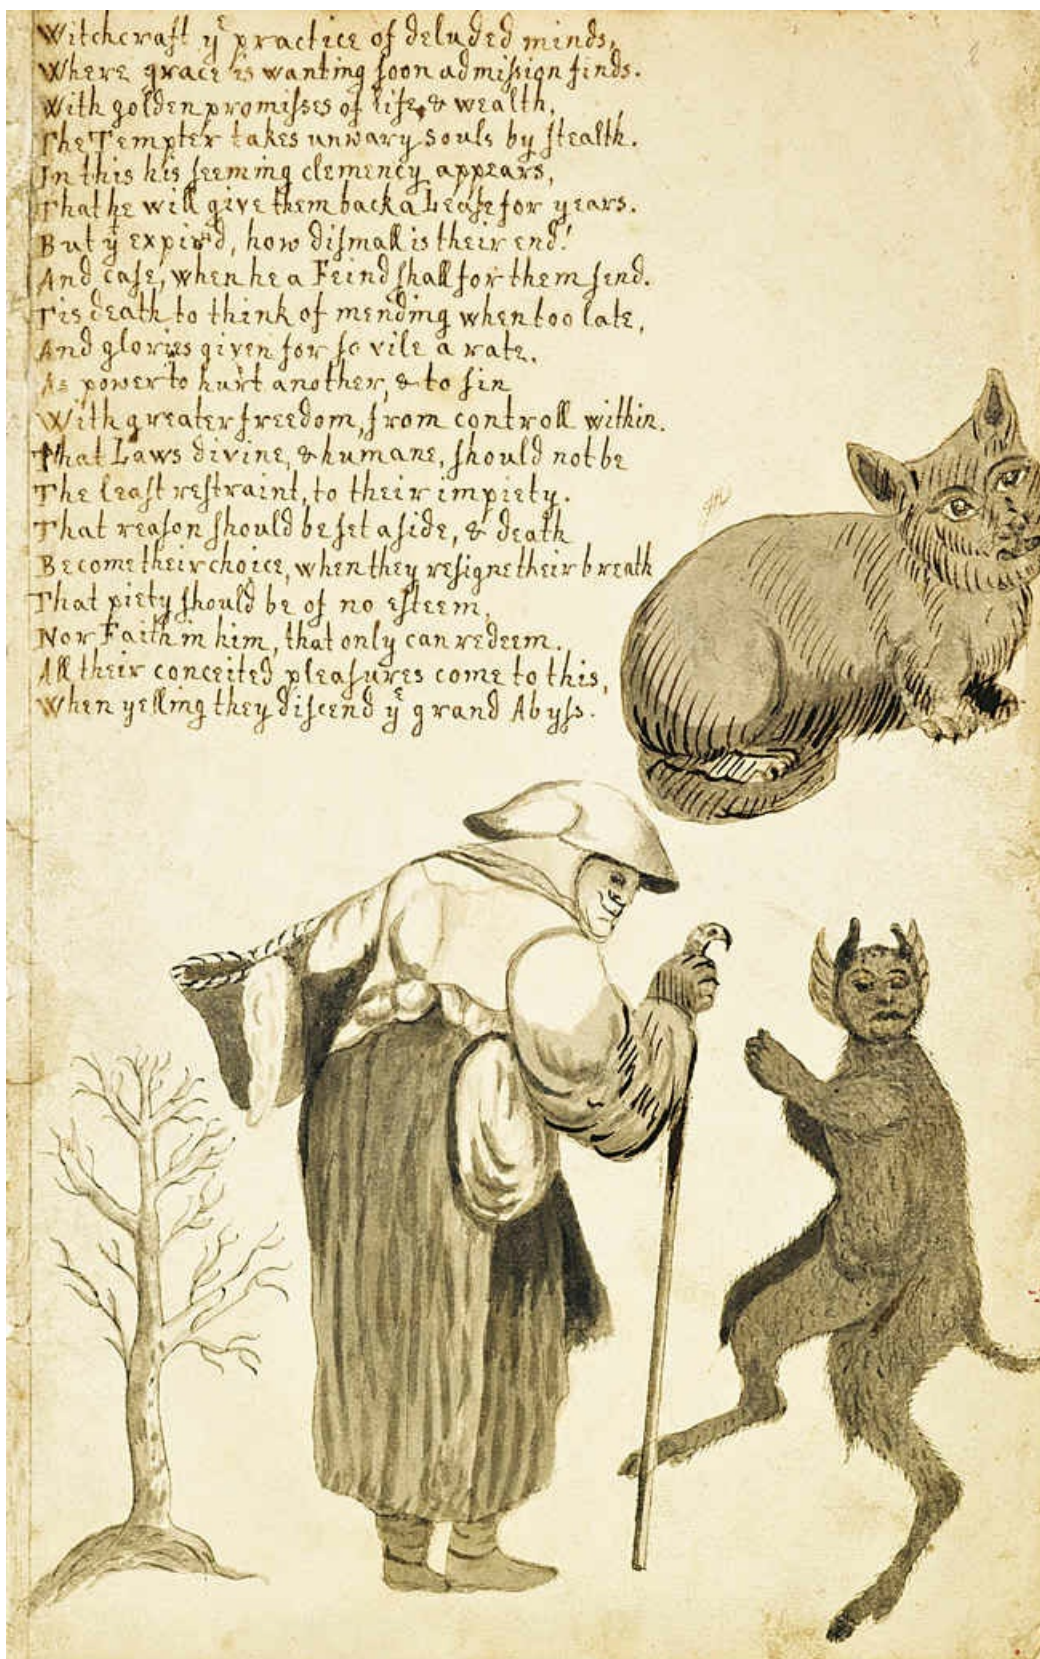 Witchcraft yᵉ practice of deluded minds,
Where grace is wanting ſoon admiſsion finds.
With golden promiſses of life, & wealth,
The Tempter takes unwary souls by ſtealth.
In this his ſeeming clemency appears,
That he will give them back a Leaſe for years.
But yᵗ expir'd, how diſmall is their end!
And caſe, when he a Feind ſhall for them ſend.
Tis death to think of mending when too late,
And glories given for ſo vile a rate.
As power to hurt another, & to ſin
With greater freedom, from controll within.
That Laws divine, & humane, ſhould not be
The leaſt reſtraint, to their impiety.
That reaſon ſhould be ſet aſide, & death
Become their choice, when they reſigne their breath
That piety ſhould be of no eſteem,
Nor Faith in him, that only can redeem.
All their conceited pleaſures come to this,
When yelling they diſcend yᵉ grand Abyſs.